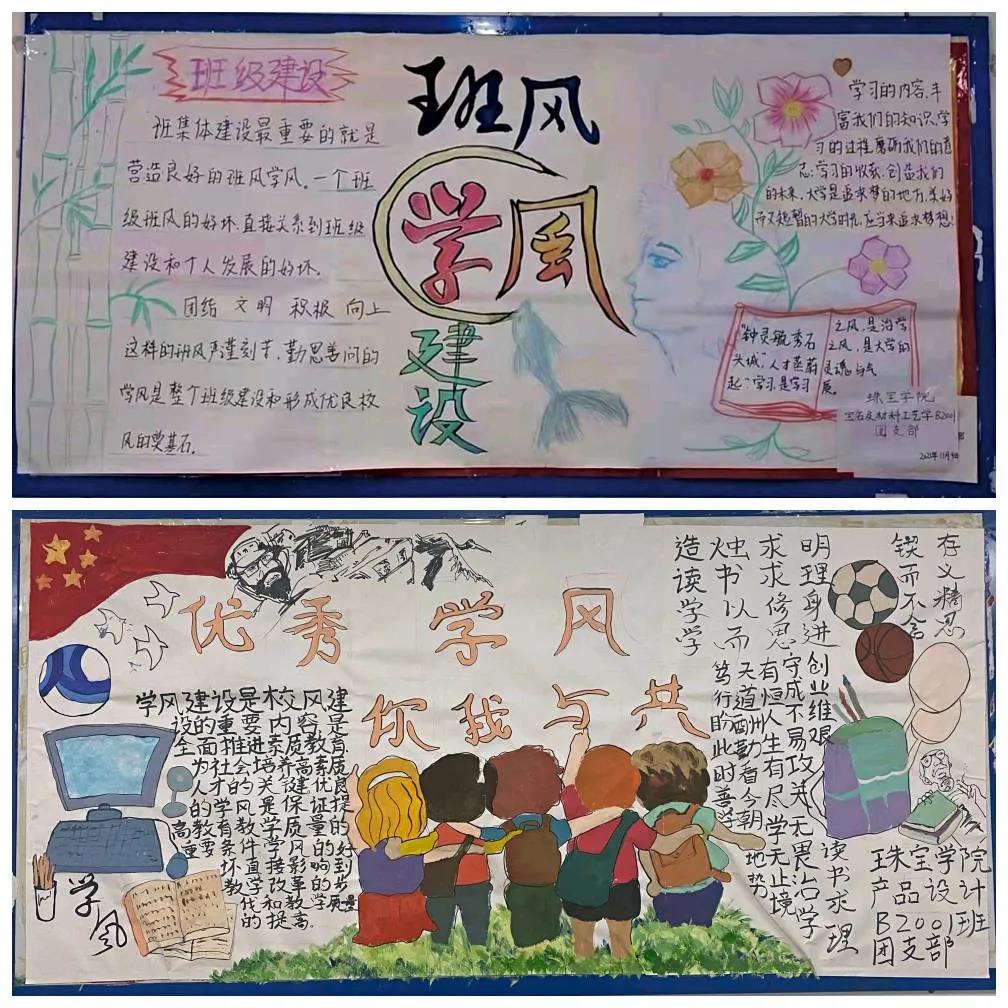 班级建设
班集体建设最重要的就是
营造良好的班风学风。一个班
级班风的好坏直接关系到班级
建设和个人发展的好坏。
团结 文明 积极 向上
这样的班风严谨刻苦，勤思善问的
学风是整个班级建设和形成优良校
风的奠基石。
班风
学风
建设
学习的内容,丰
富我们的知识,学
习的过程,磨砺我们的意
志,学习的收获,创造我们
的未来,大学是追求梦的地方,美好
而又短暂的大学时光,应当来追求梦想!
"钟灵毓秀石
头城",人才荟蔚
起"学习,是学习
之风,是治学
之风,是大学的
灵魂与气
质
珠宝学院
宝石及材料工艺学B2001
团支部
优秀学风
你我与共
学风建设是校风建
设的重要内容是
全面推进素质教育
为社会培养高素质
学风
存义精思
锲而不舍
明理身进
求求修思
烛书以而
造读学学
创业维艰
守成不易攻关无畏治学
有恒人生有尽学无止境
天道酬勤看今朝
笃行盼此时善学
地势
读书求理
珠宝学院
产品设计
B2001班
团支部